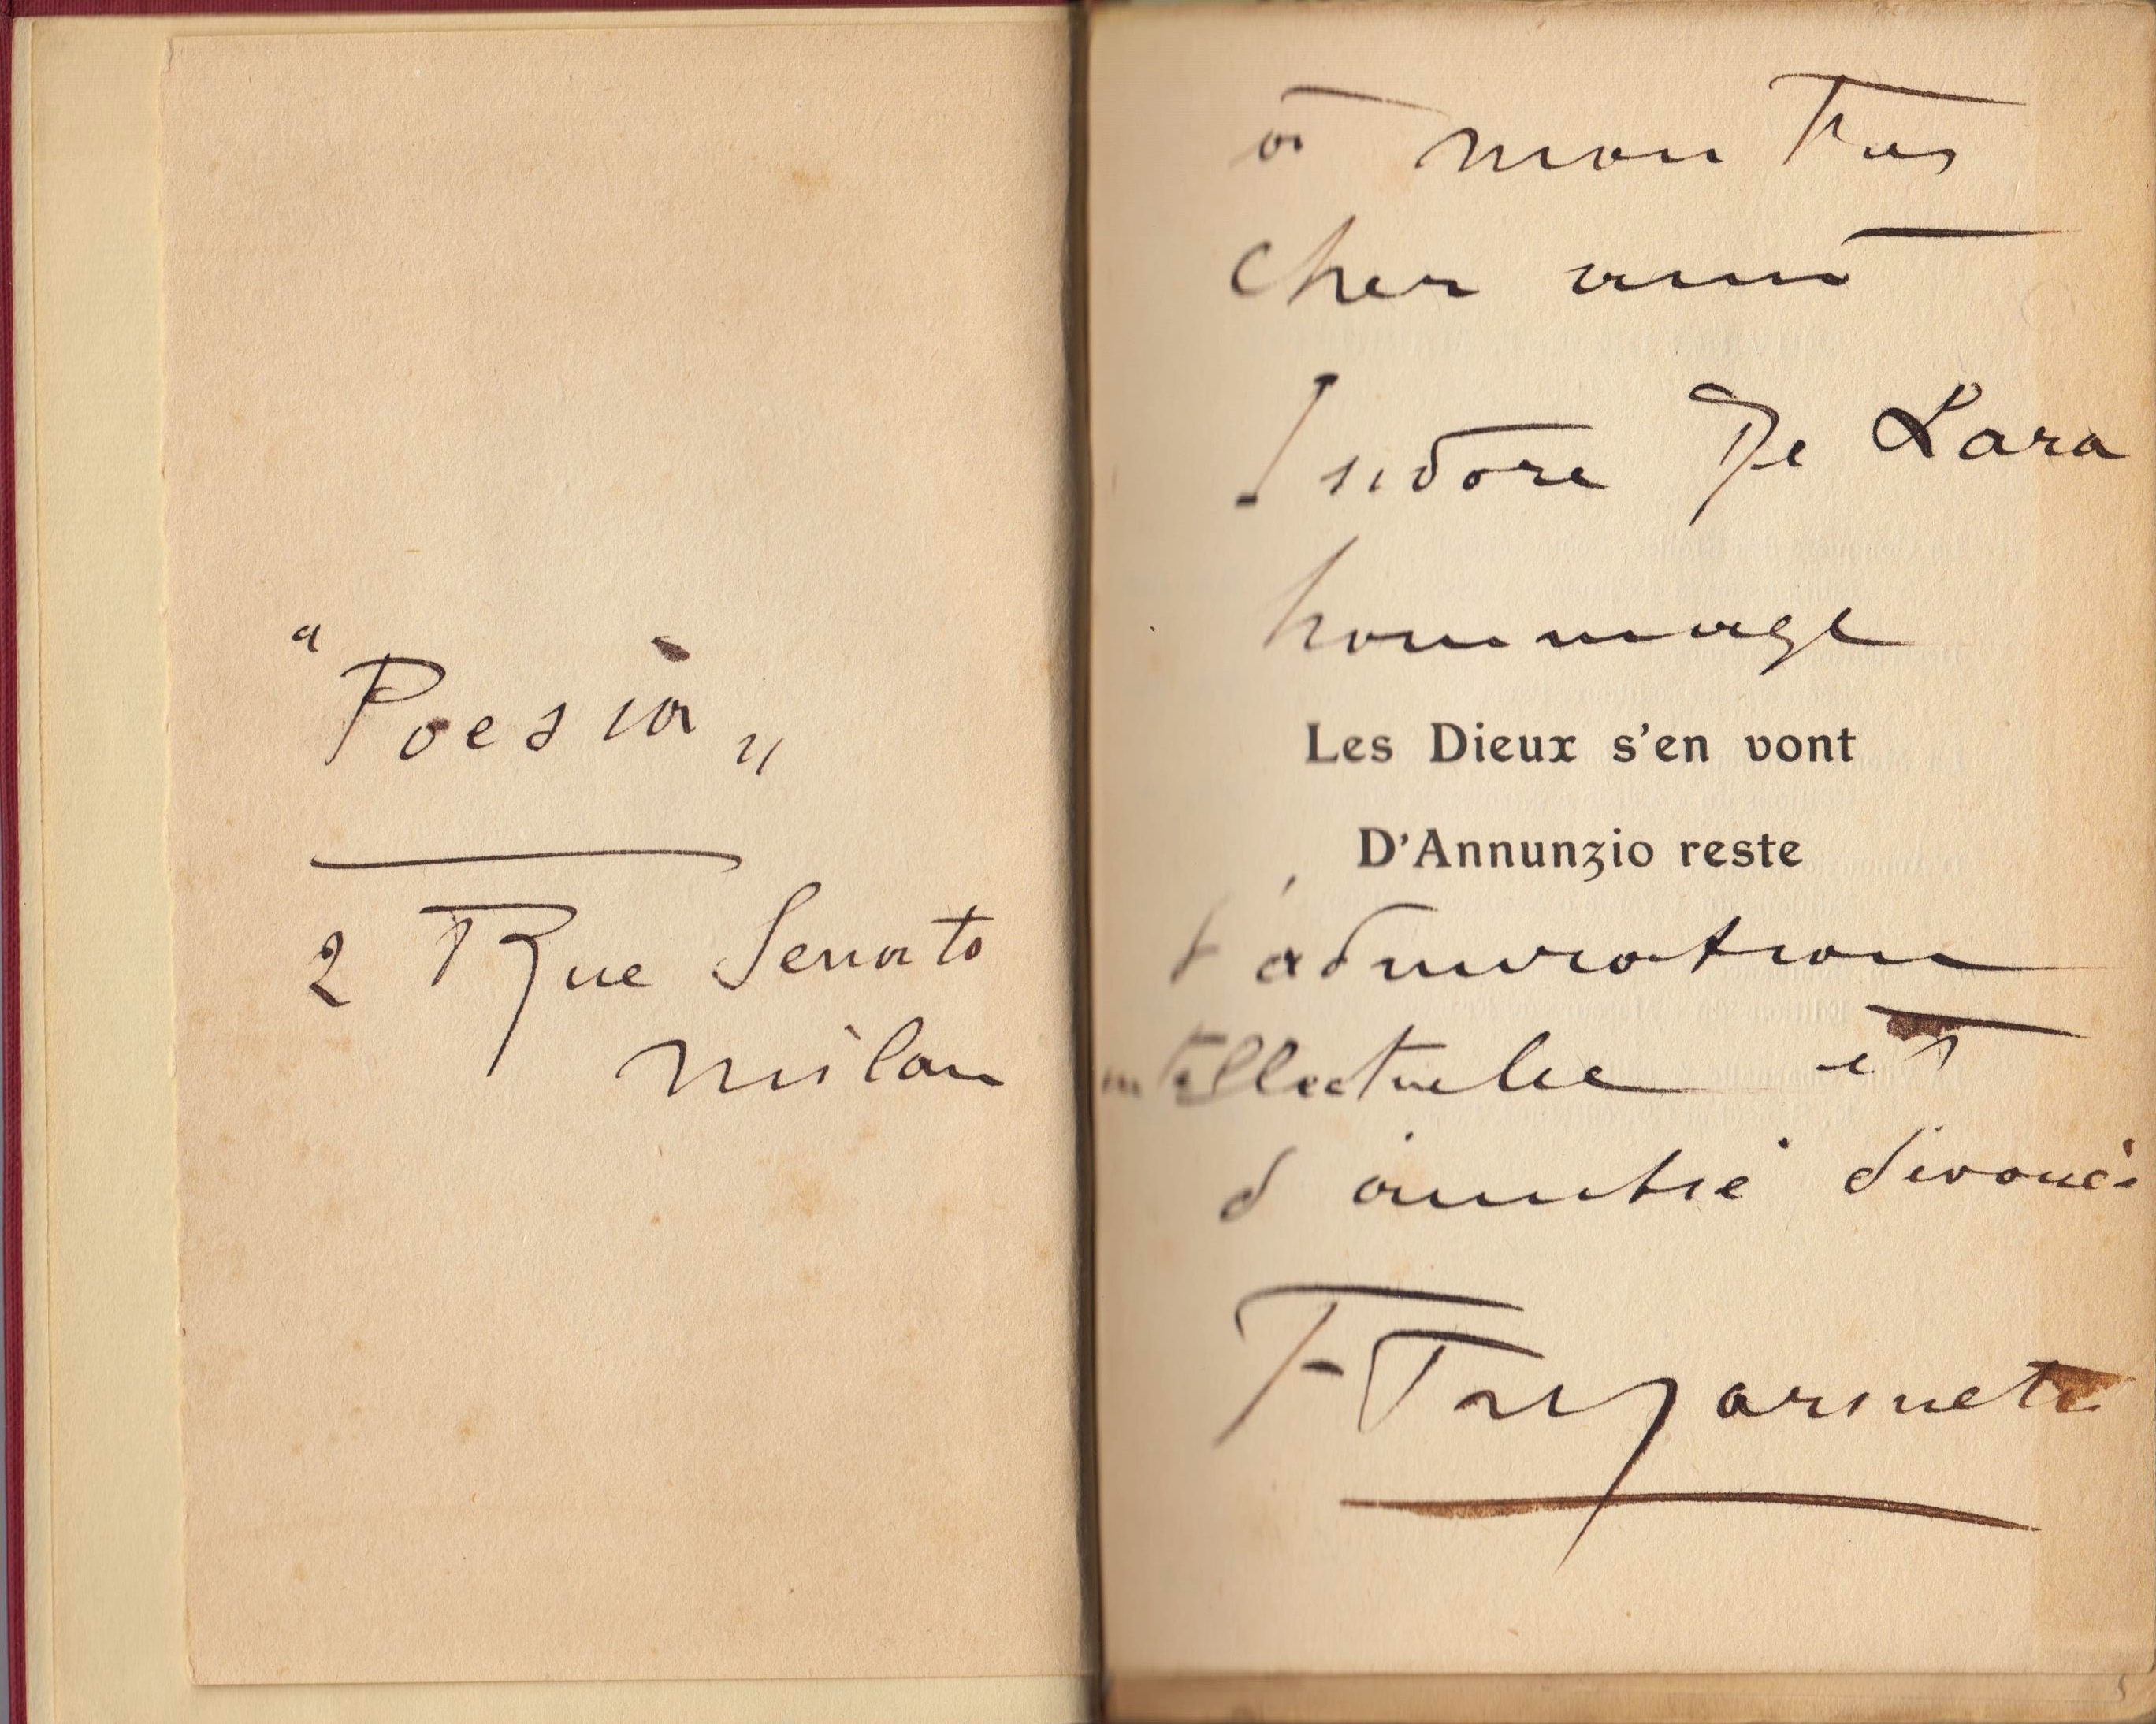 "Poesia„
2 Rue Senato
Milan
à mon très
cher ami
Isidore De Lara
hommage
Les Dieux s'en vont
D'Annunzio reste
d'admiration
intellectuelle et
d'amitié dévouée
F T Marinetti